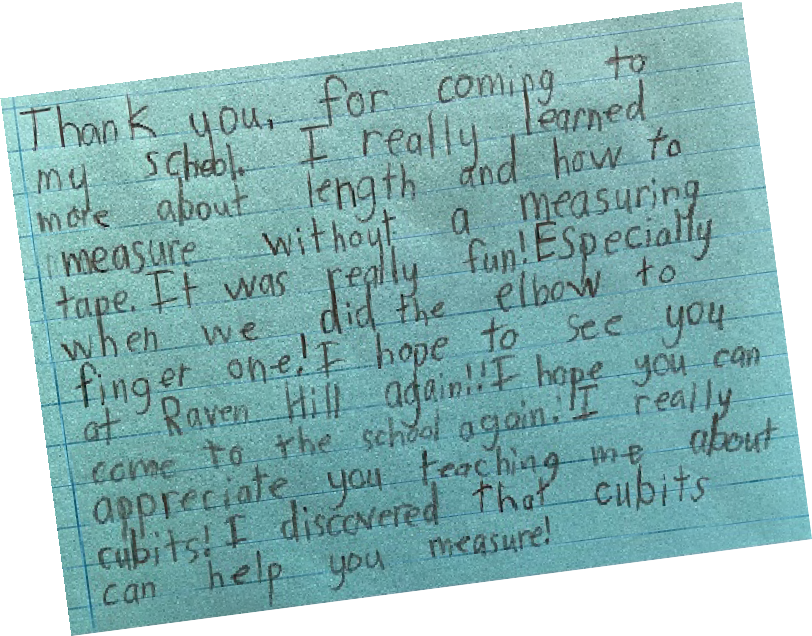 Thank you, for coming to
my school. I really learned
more about length and how to
measure without a measuring
tape. It was really fun! ESpecially
when we did the elbow to
finger one! I hope to see you
at Raven Hill again!! I hope you can
come to the school again!! I really
appreciate you teaching me about
cubits! I discovered that cubits
can help you measure!